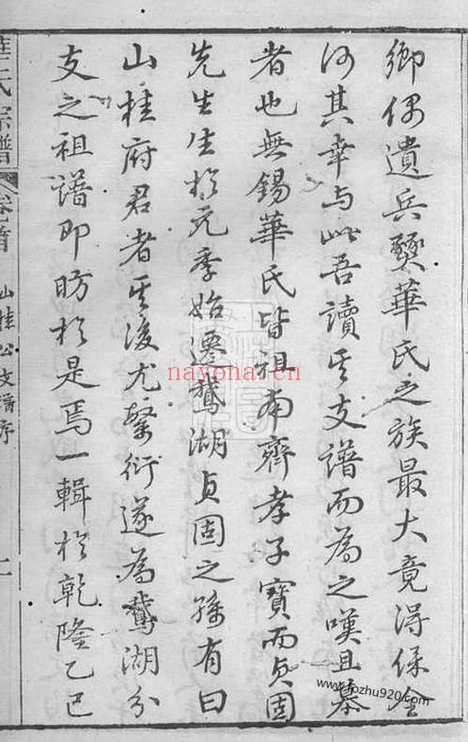 鄉偶遺兵燹華氏之族最大竟得保全
何其幸与此吾讀其支譜而為之嘆且慕
者也無錫華氏皆祖南齊孝子寶而貞固
先生生於元季始遷鵝湖貞固之孫有曰
山桂府君者其後尤繁衍遂為鵝湖分
支之祖譜即昉於是焉一輯於乾隆乙巳
華氏宗譜 卷首 山桂公支譜序 二
nayona.cn
www.bozhu920.com